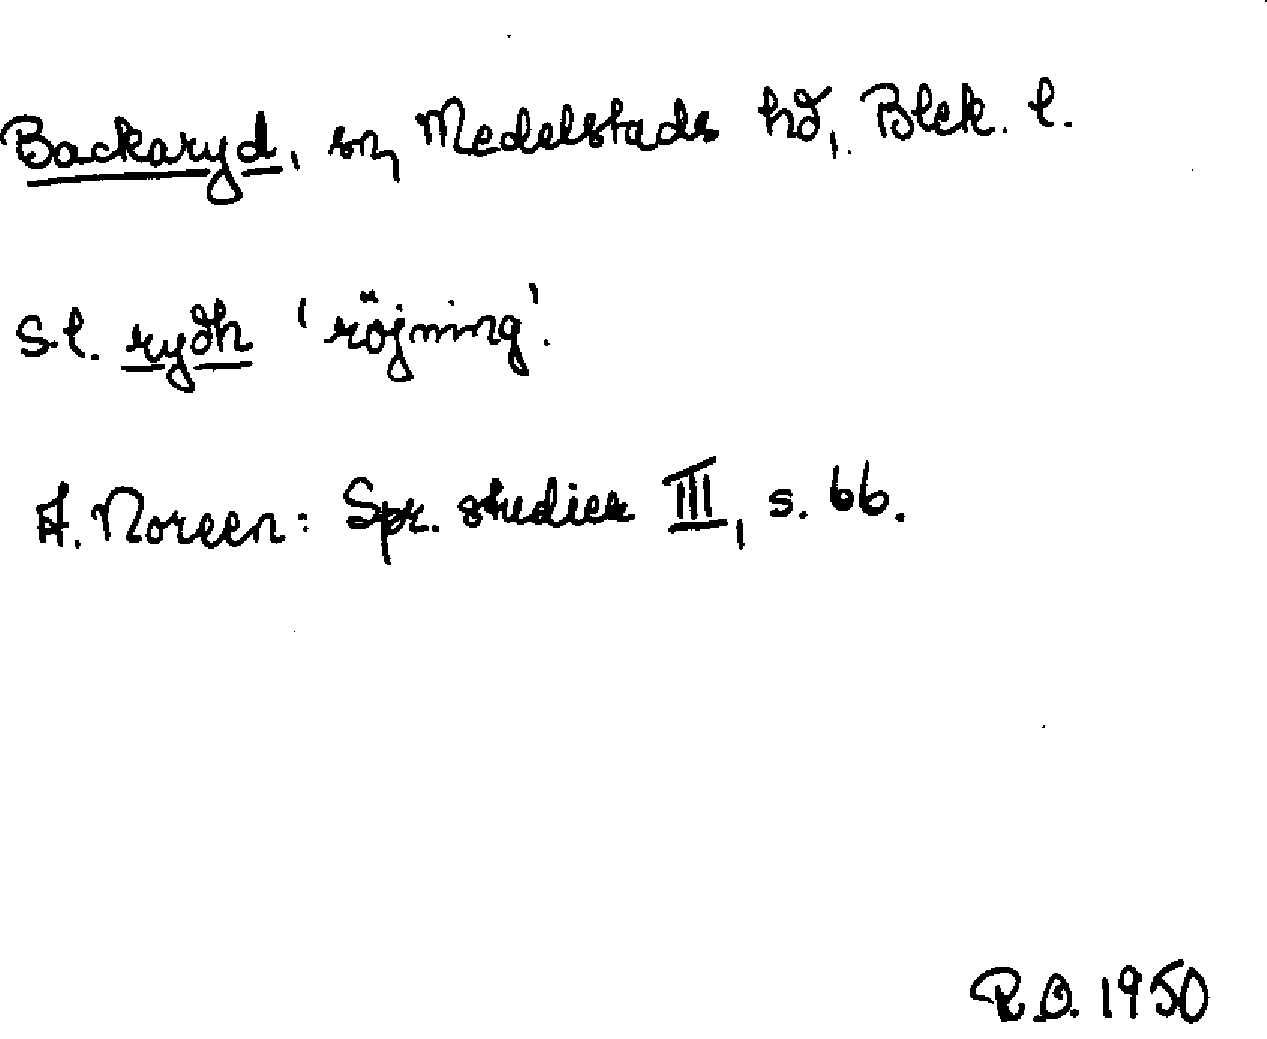 Backaryd, sn, Medelstads hd, Blek. l.
S.l. rydh 'röjning'.
A. Noreen: Spr. studier III, s. 66.
R.O. 1950